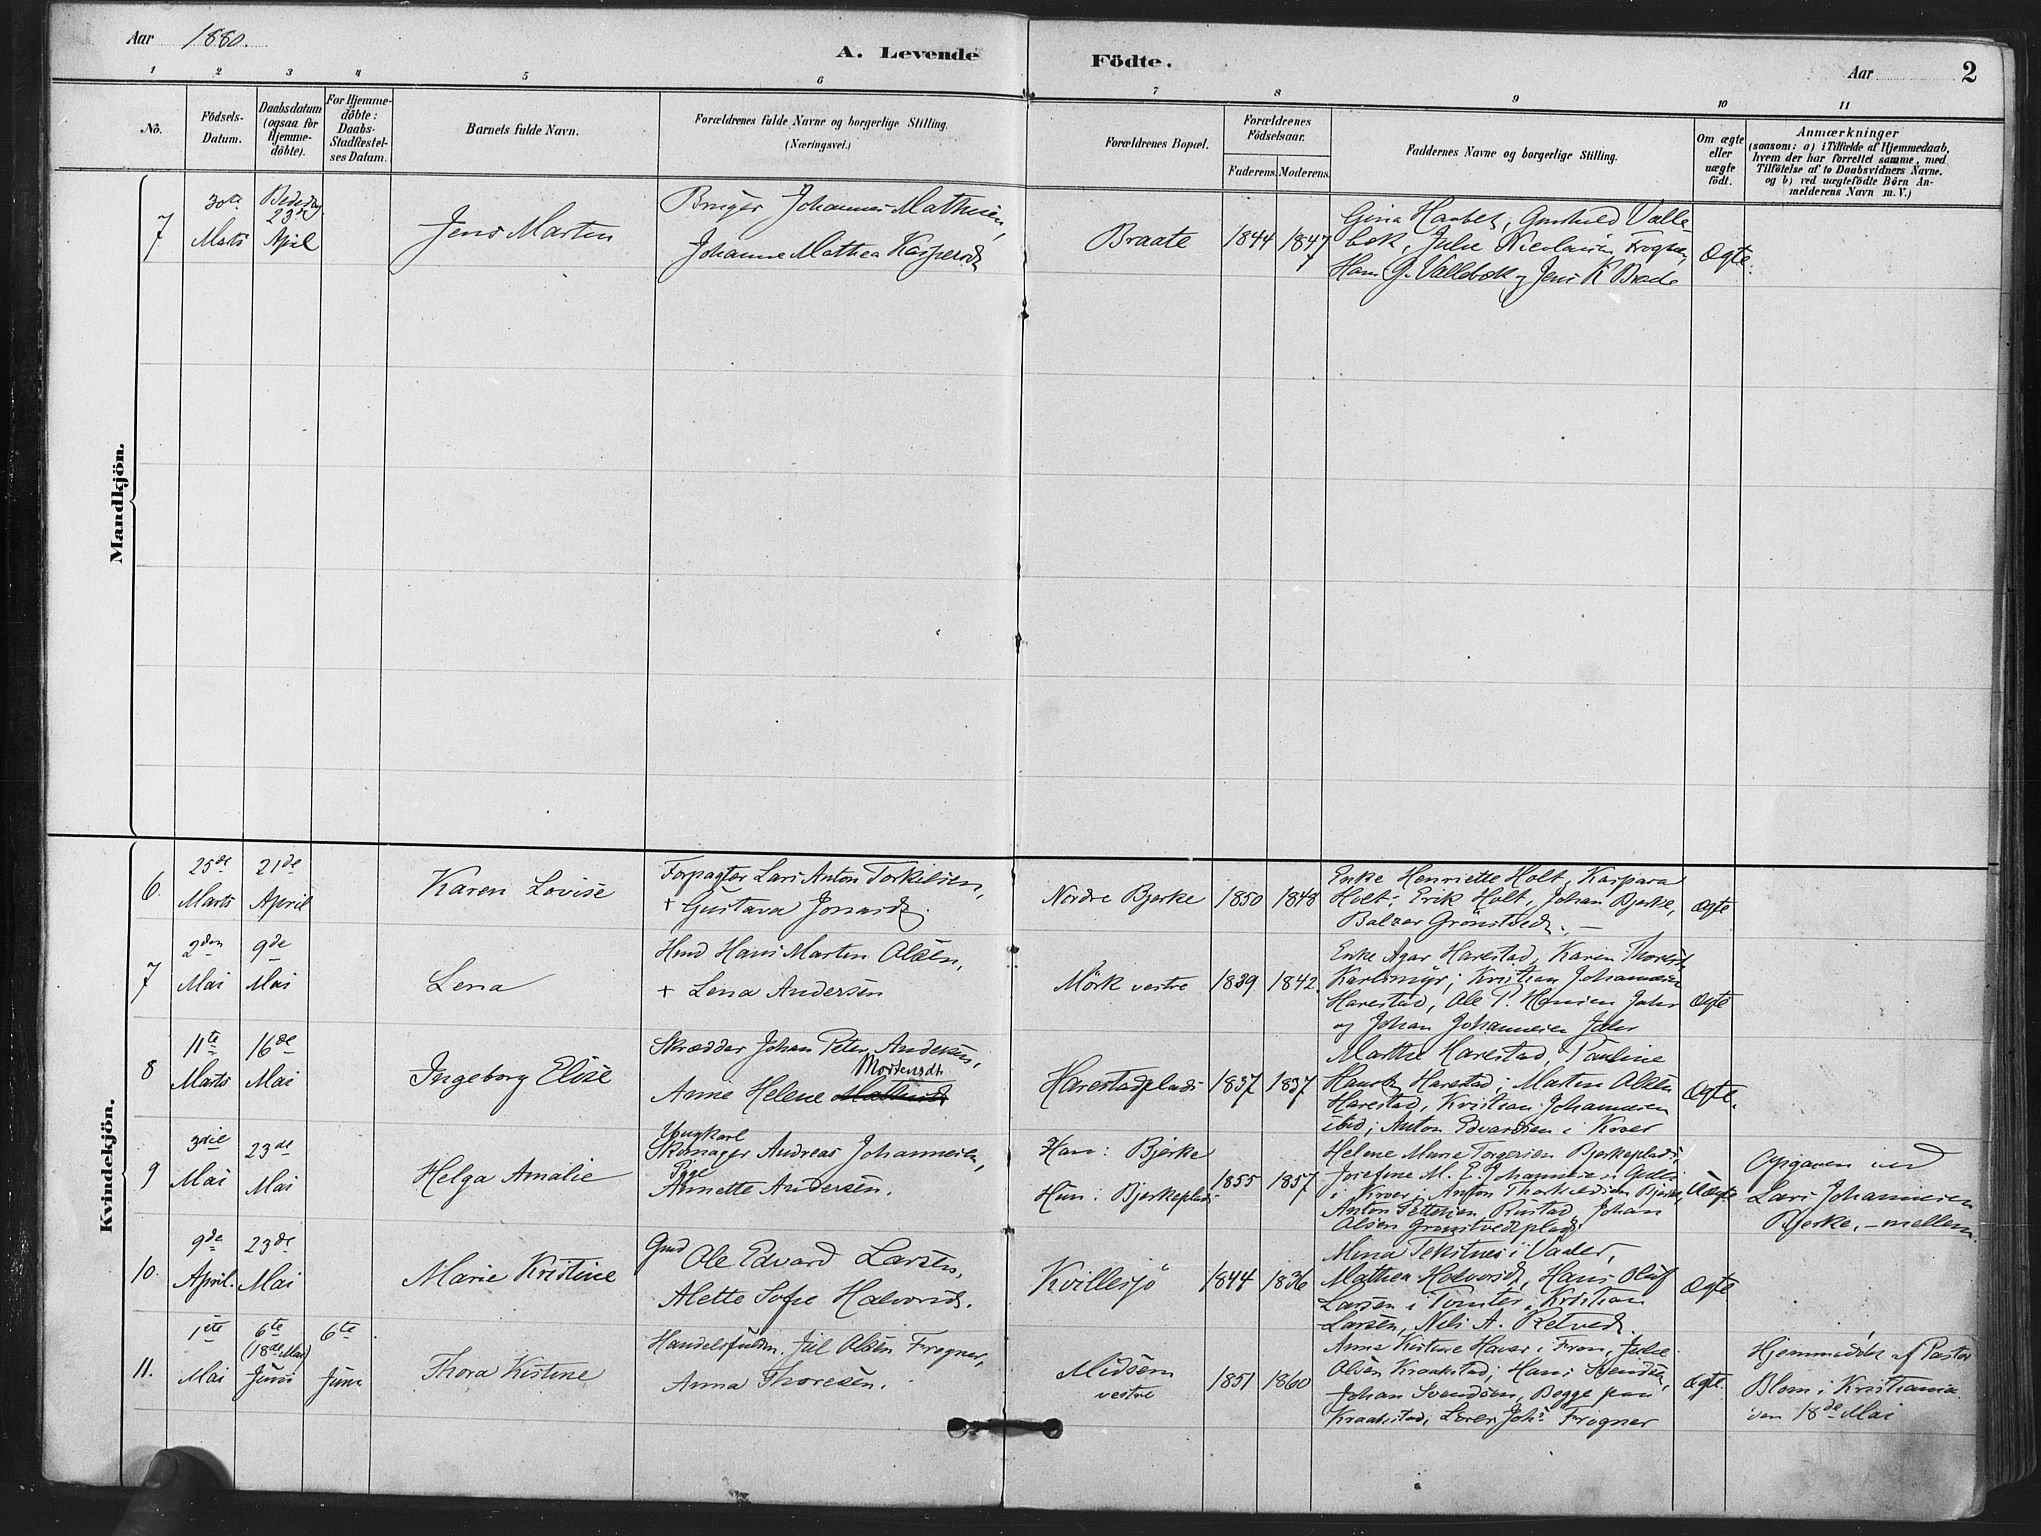 Aar 1880.
A. Levende Födte.
Aar 2
1 2 3 4 5 6 7 8 9 10 11
No.
Födsels-
Datum.
Daabsdatum
(ogsaa for
Hjemme-
döbte).
For Hjemme-
döbte:
Daabs-
Stadfæstel-
ses Datum.
Barnets fulde Navn.
Forældrenes fulde Navne og borgerlige Stilling.
(Næringsvei.)
Forældrenes Bopæl.
Forældrenes
Födselsaar.
Faderens. Moderens.
Faddernes Navne og borgerlige Stilling.
Om ægte
eller
uægte
födt.
Anmærkninger
(saasom: a) i Tilfælde af Hjemmedaab,
hvem der har forrettet samme, med
Tilföielse af to Daabsvidners Navne.
og b) ved uægtefödte Börn An-
melderens Navn m. V.)
Mandkjön.
7
30te
Marts
Bededag
23de
April
Jens Martin
Bruger Johannes Mathisen,
Johanne Mathea Kaspersdt
Braate
1844 1847
Gina Haabet, Gunhild Valle-
bæk, Julie Nicolaisen Frogner,
Hans G. Vallebæk og Jens K Braate
Ægte.
Kvindekjön.
6.
25de
Marts
21de
April
Karen Lovise
Forpagter Lars Anton Torkilsen,
+ Gustava Jonasdt.
Nordre Bjerke
1850 1848
Enke Henriette Holt, Kaspara
Holt; Erik Holt, Johan Bjerke,
Balzer Grönstvedt. —
Ægte
7
2den
Mai
9de
Mai
Lena
Hmd Hans Martin Olsen,
+ Lena Andersen
Mörk vestre
1839 1842.
Enke Agar Harestad, Karen Thorsdt
Karlsmyr; Kristian Johannesen
Harestad, Ole P. Hansen Jahr
og Johan Johannesen Jahr
Ægte
8
11te
Marts
16de
Mai
Ingeborg Elise
Skrædder Johan Peter Andersen,
Mortensdt
Anne Helene
Harestadplads
1837 1837
Marthe Harestad, Pauline
Hansdt Harestad; Martin Olsen
Harestad, Kristian Johannesen
ibid; Anton Edvardsen i Kroer
Ægte.
9
3die
Mai
23de
Mai
Helga Amalie
Ungkarl
Skomager Andreas Johannesen,
Pige
Annette Andersen.
Han: Bjerke
Hun: Bjerkeplads
1855 1857
Helene Marie Torgersen Bjerkeplads,
Josefine M. E. Johannesen
i Kroer; Anton Thorkildsen Bjerke,
Anton Rustad, Johan
Olsen Grønstvedtplads
Uægte
Opgaven ved
Lars Johannesen
Bjerke, – mellem.
10.
9de
April.
23de
Mai
Marie Kristine
Gmd Ole Edvard Larsen,
Alette Sofie Halvorsdt.
Kvillesjö
1844 1836
Mina Tekstnes i Vaaler,
Mathea Halvorsdt, Hans Oluf
Larsen i Tomter, Kristian
Larsen, Nils A. Retvedt.
Ægte
11.
1ste
Mai
6te
(18de Mai)
Juni
6te
Juni
Thora Kristine
Handelsfuldm. Jul Olsen Frogner,
Anna Thoresen.
Midsem
vestre
1851 1860
Anna Kirstine Haver i Fron, Julie
Olsen Kraakstad; Hans Svendsen,
Johan Svendsen, Begge paa
Kraakstad, Lærer Johs Frogner
Ægte.
Hjemmedöbt af Pastor
Blom i Kristiania
den 18de Mai